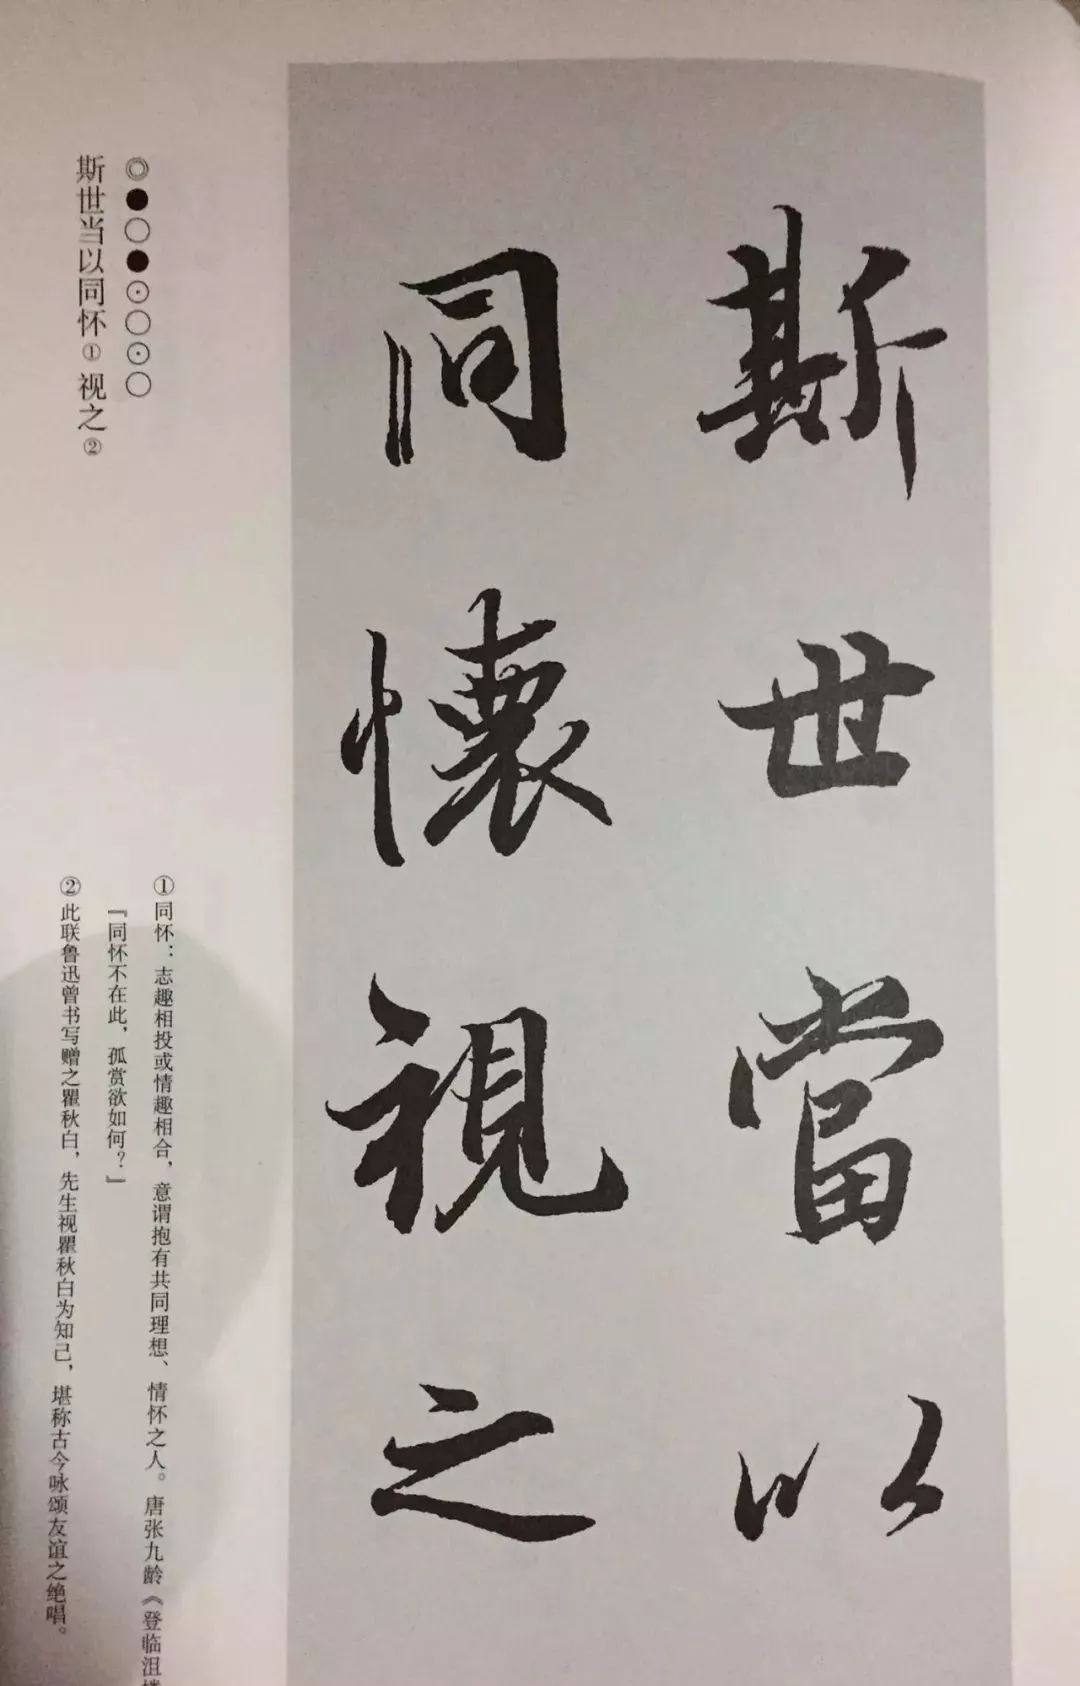 斯世當以
同懷視之
◎●○●⊙○⊙○
斯世当以同怀①视之②
①同怀：志趣相投或情趣相合，意谓抱有共同理想、情怀之人。唐张九龄《登临沮楼
『同怀不在此，孤赏欲如何？』
②此联鲁迅曾书写赠之瞿秋白，先生视瞿秋白为知己，堪称古今咏颂友谊之绝唱。